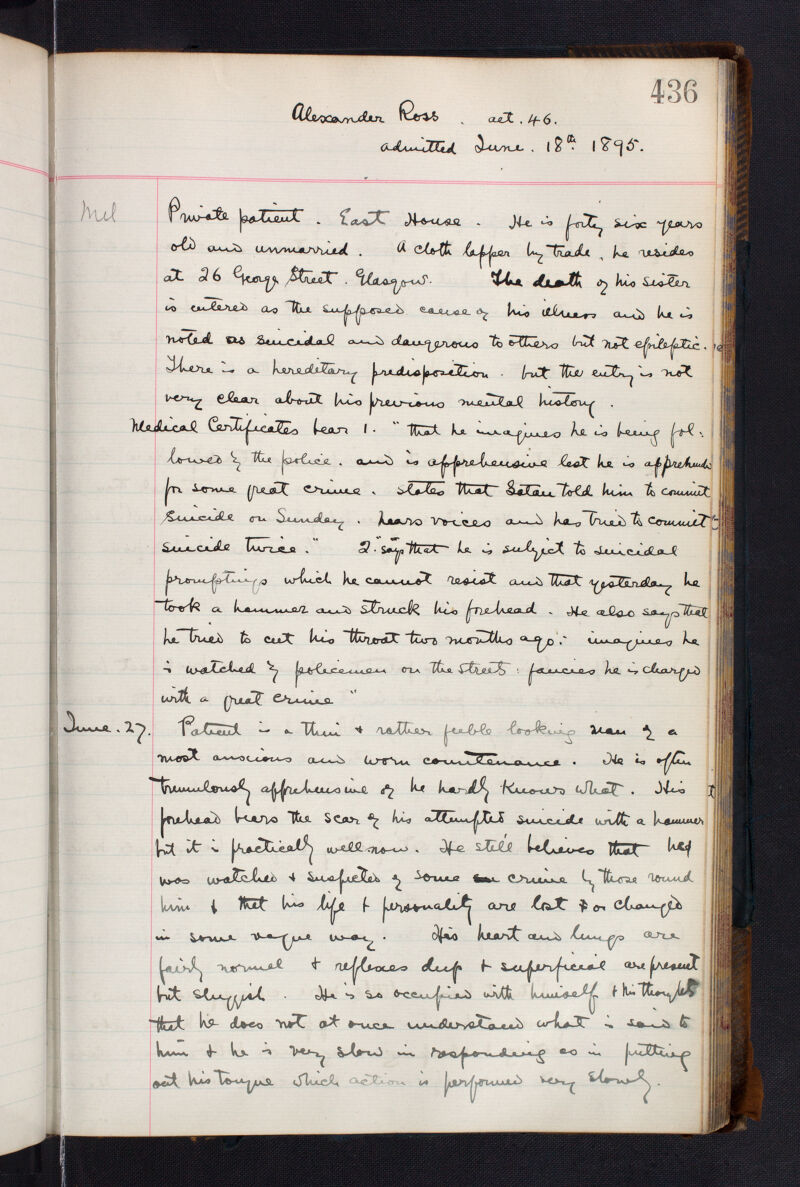 436
Alexander Ross. aet. 46.
admitted June. 18th 1895.
Mel
Private patient. East House. He is forty six years
old and unmarried. A cloth lapper by trade, he resides
at 26 George Street. Glasgow. The death of his sister
is entered as the supposed cause of his illness and he is
noted as suicidal and dangerous to others but not epileptic.
There is a hereditary predisposition. but the entry is not
very clear about his previous mental history.
Medical Certificates bear 1. "that he imagines he is being fol:
lowed by the police. and is apprehensive lest he is apprehended
for some great crime. states that Satan told him to commit
suicide on Sunday. hears voices and has tried to commit
suicide twice." 2. "says that he is subject to suicidal
promptings which he cannot resist and that yesterday he
took a hammer and struck his forehead. He also says that
he tried to cut his throat two months ago: imagines he
is watched by policemen on the streets: fancies he is charged
with a great crime"
June. 27. Patient is a thin & rather feeble looking man of a
most anxious and worn countenance. He is often
tremulously apprehensive of he hardly knows what. His
forehead bears the scar of his attempted suicide with a hammer
but it is practically well now. He still believes that he
was watched & suspected of some crime by those round
him & that his life & personality are lost or changed
in some vague way. His heart and lungs are
fairly normal & reflexes deep & superficial are present
but sluggish. He is so occupied with himself & his thoughts
that he does not at once understand what is said to
him & he is very slow in responding as in putting
out his tongue which action is performed very slowly.